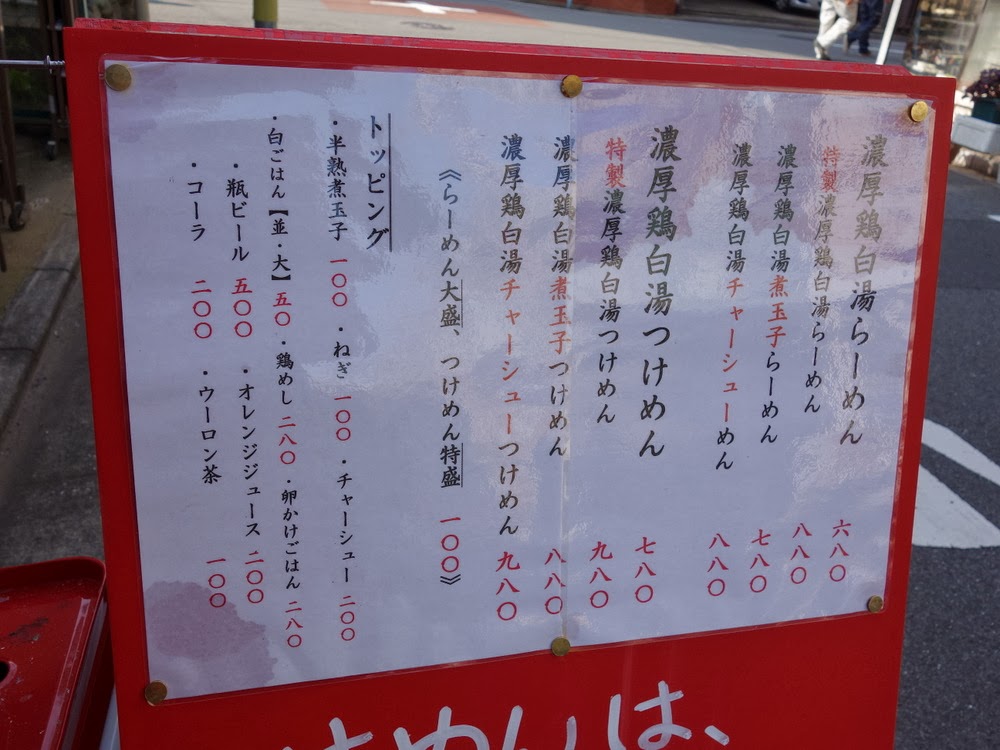 濃厚鶏白湯らーめん 六八〇
特製濃厚鶏白湯らーめん 八八〇
濃厚鶏白湯煮玉子らーめん 七八〇
濃厚鶏白湯チャーシューめん 八八〇
濃厚鶏白湯つけめん 七八〇
特製濃厚鶏白湯つけめん 九八〇
濃厚鶏白湯煮玉子つけめん 八八〇
濃厚鶏白湯チャーシューつけめん 九八〇
《らーめん大盛、つけめん特盛 一〇〇》
トッピング
・半熟煮玉子 一〇〇 ・ねぎ 一〇〇 ・チャーシュー 二〇〇
・白ごはん【並・大】五〇 ・鶏めし 二八〇 ・卵かけごはん 二八〇
・瓶ビール 五〇〇 ・オレンジジュース 二〇〇
・コーラ 二〇〇 ・ウーロン茶 一〇〇
けめんは、